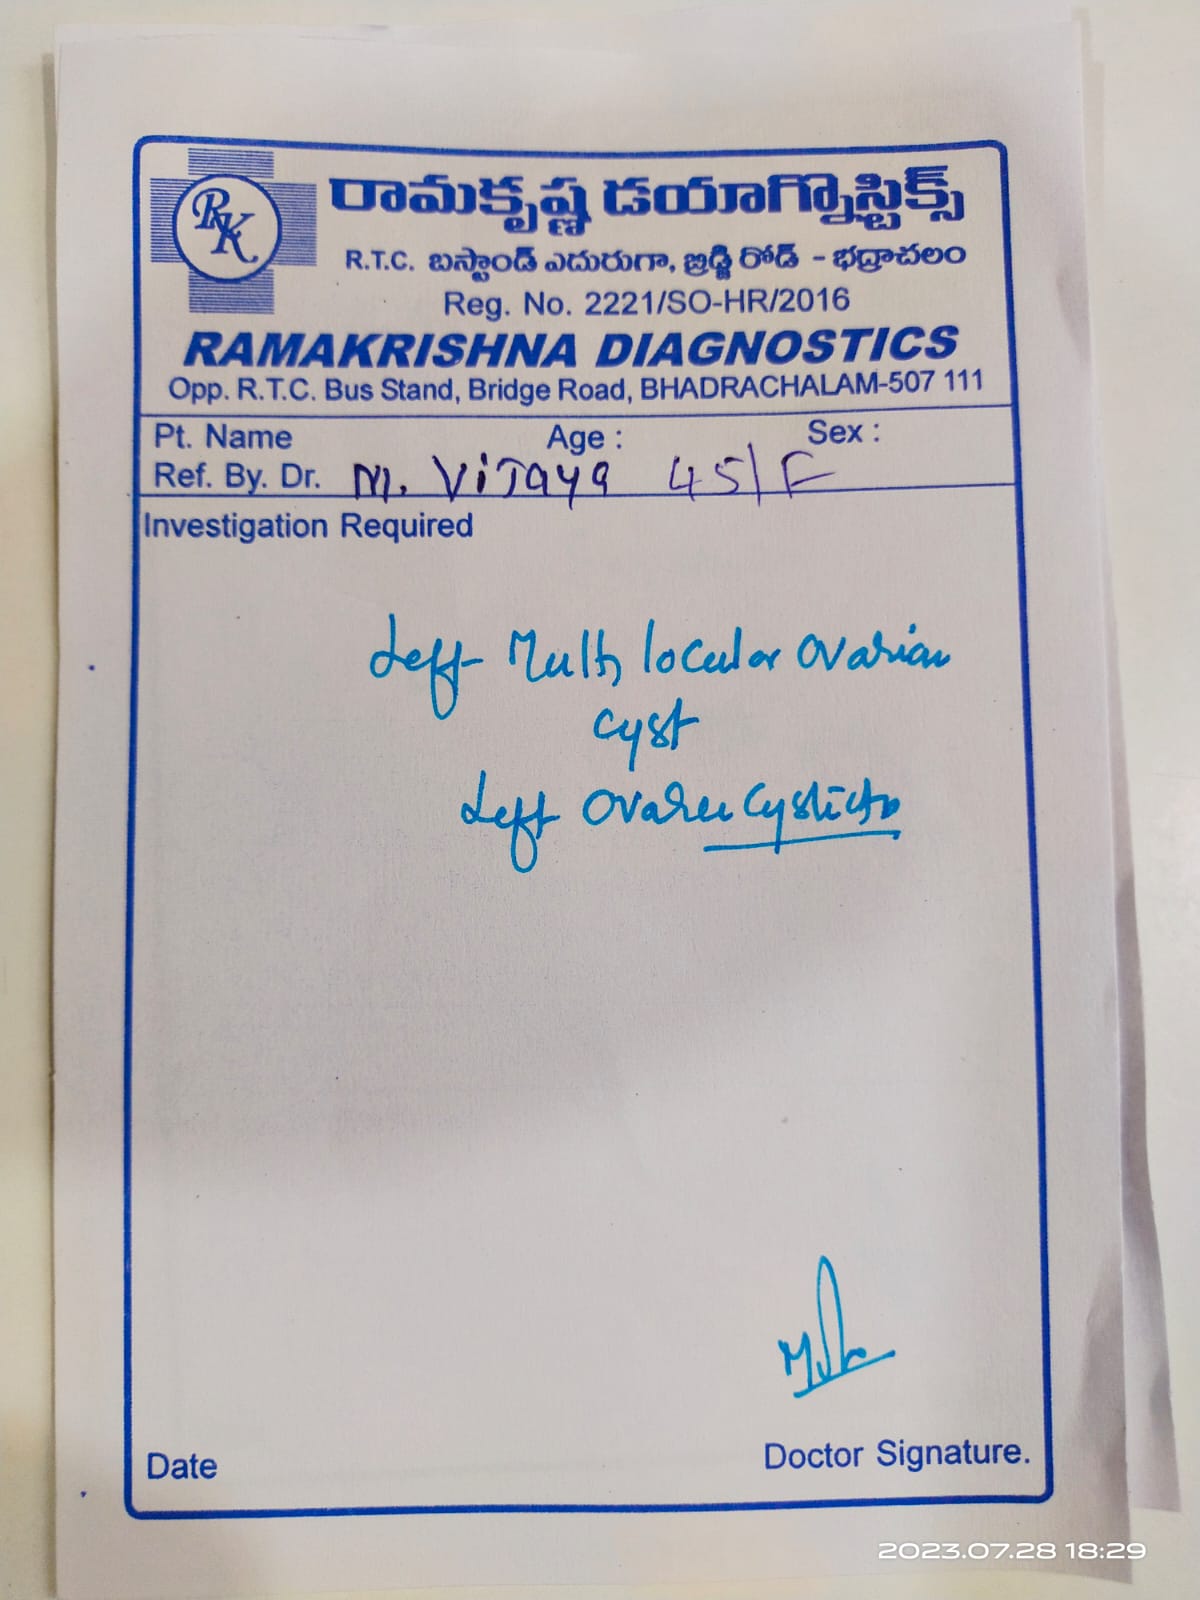 RK
రామకృష్ణ డయాగ్నొస్టిక్స్
R.T.C. బస్టాండ్ ఎదురుగా, బ్రిడ్జి రోడ్ - భద్రాచలం
Reg. No. 2221/SO-HR/2016
RAMAKRISHNA DIAGNOSTICS
Opp. R.T.C. Bus Stand, Bridge Road, BHADRACHALAM-507 111
Pt. Name Age : Sex :
Ref. By. Dr. M. Vijaya 45/F
Investigation Required
Left Multi locular ovarian
cyst
Left
Date Doctor Signature.
2023.07.28 18:29